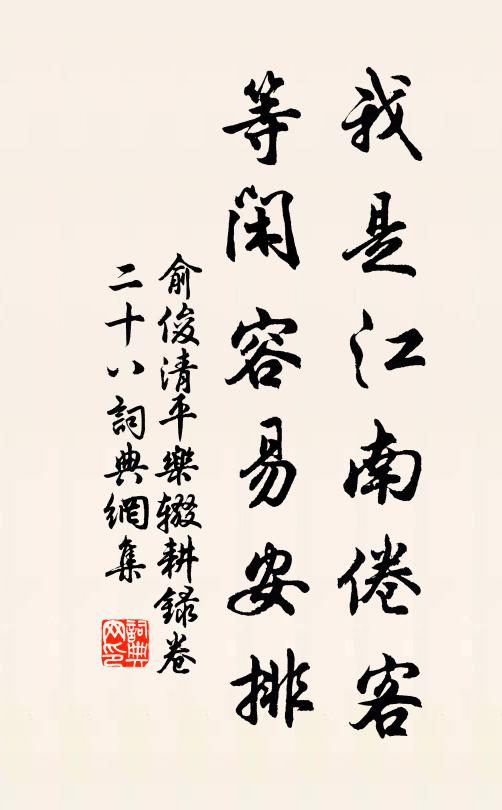 我是江南倦客
等闲容易安排
俞俊清平樂辍耕録卷
二十八詞典網集
詞典網印